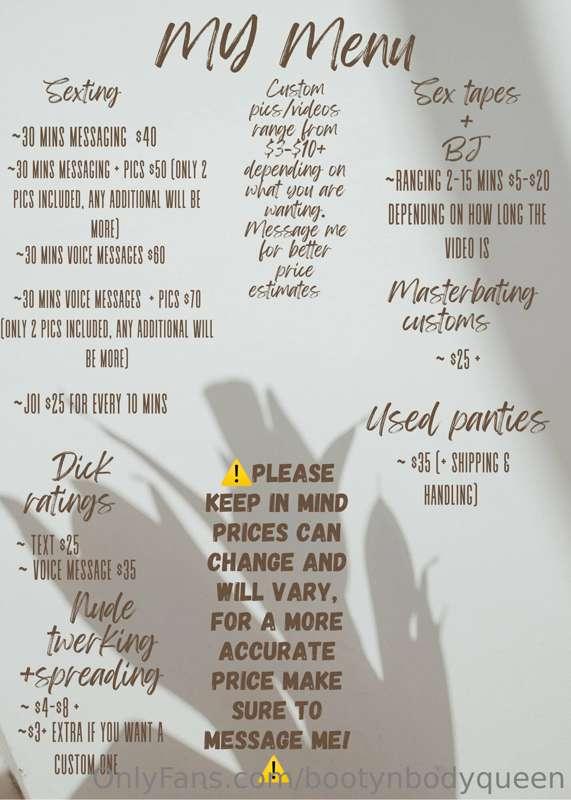 MY Menu
Sexting
~30 MINS MESSAGING $40
~30 MINS MESSAGING + PICS $50 (ONLY 2
PICS INCLUDED, ANY ADDITIONAL WILL BE
MORE)
~30 MINS VOICE MESSAGES $60
~30 MINS VOICE MESSAGES + PICS $70
(ONLY 2 PICS INCLUDED, ANY ADDITIONAL WILL
BE MORE)
~JOI $25 FOR EVERY 10 MINS
Dick
ratings
~ TEXT $25
~ VOICE MESSAGE $35
Nude
twerking
+spreading
~ $4-$8 +
~$3+ EXTRA IF YOU WANT A
CUSTOM ONE
Custom
pics/videos
range from
$3-$10+
depending on
what you are
wanting.
Message me
for better
price
estimates
⚠️PLEASE
KEEP IN MIND
PRICES CAN
CHANGE AND
WILL VARY,
FOR A MORE
ACCURATE
PRICE MAKE
SURE TO
MESSAGE ME!
⚠️
Sex tapes
+
BJ
~RANGING 2-15 MINS $5-$20
DEPENDING ON HOW LONG THE
VIDEO IS
Masterbating
customs
~ $25 +
Used panties
~ $35 (+ SHIPPING &
HANDLING)
OnlyFans.com/bootynbodyqueen